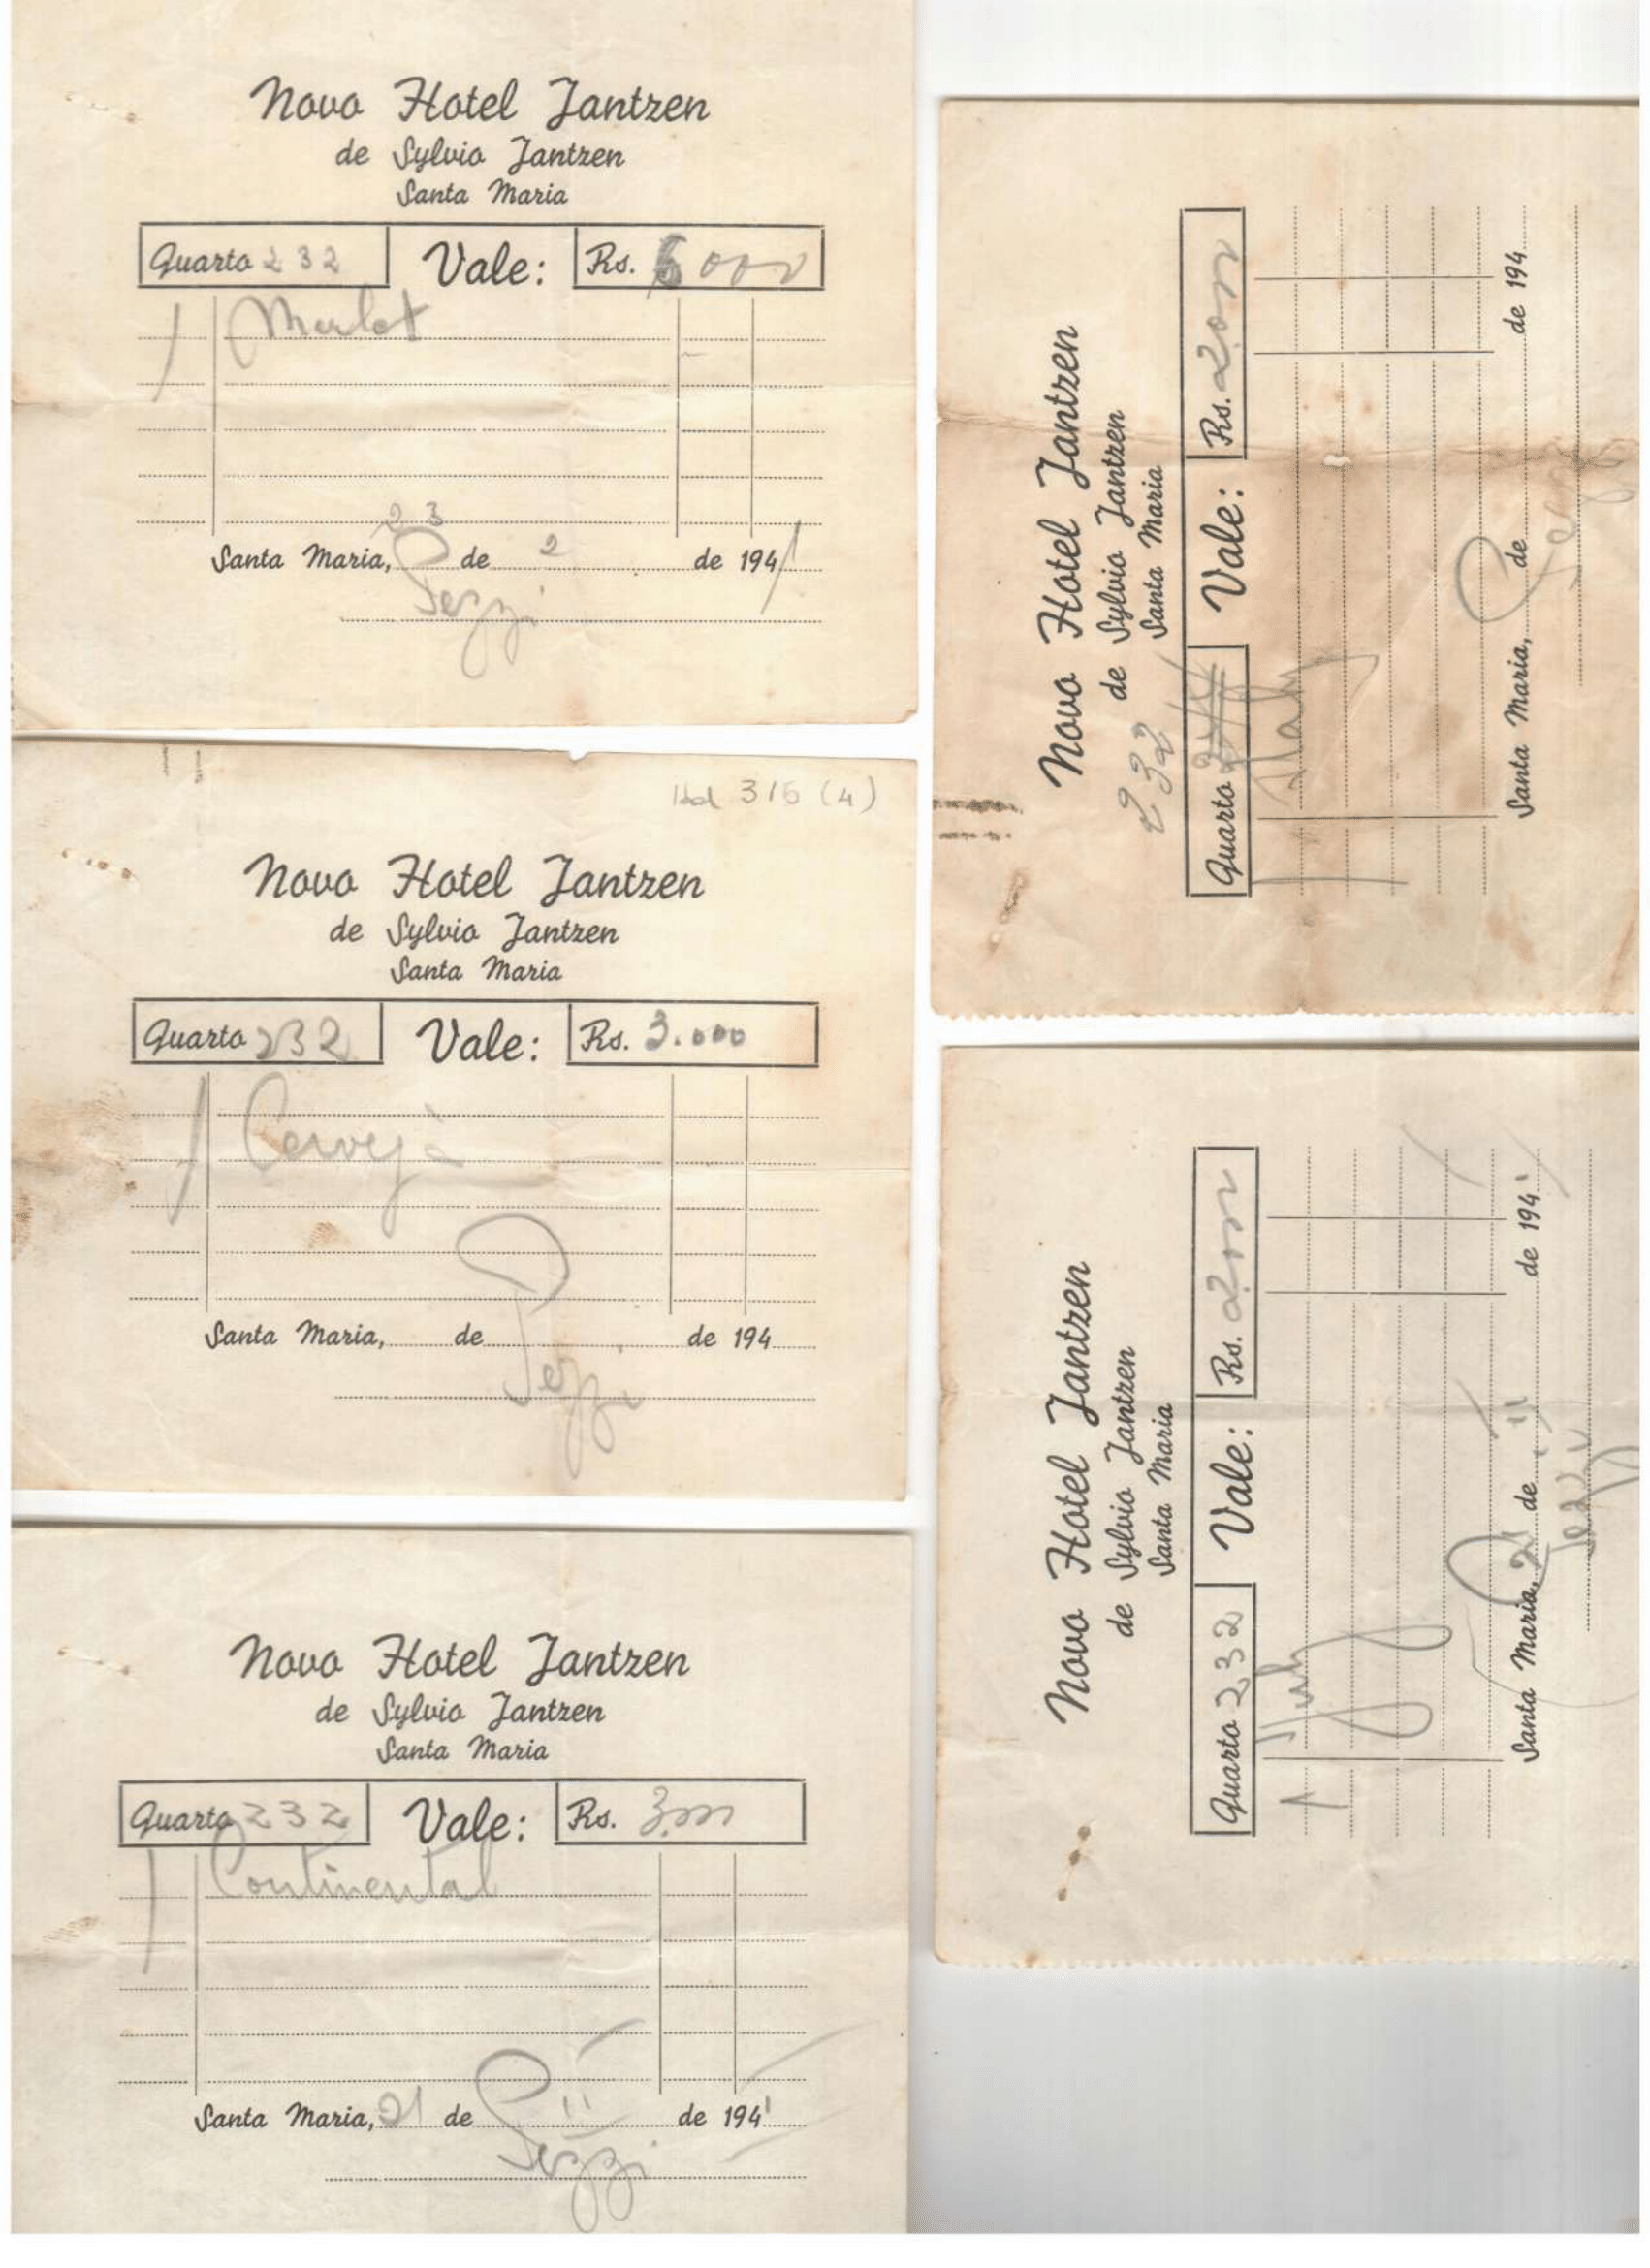 Novo Hotel Jantzen
de Sylvio Jantzen
Santa Maria
Quarto 232 Vale: Rs. 6000
1 Merlot
23
Santa Maria, de 2 de 1941
Pezzi
Hd 315 (4)
Novo Hotel Jantzen
de Sylvio Jantzen
Santa Maria
Quarto 232 Vale: Rs. 3.000
1 Cerveja
Santa Maria, de de 194
Pezzi
Novo Hotel Jantzen
de Sylvio Jantzen
Santa Maria
Quarto 232 Vale: Rs. 3.000
1 Continental
Santa Maria, 21 de 11 de 1941
Pezzi
Novo Hotel Jantzen
de Sylvio Jantzen
232 Santa Maria
Quarto Vale: Rs. 2.000
1
Santa Maria, de de 194
Pezzi
Novo Hotel Jantzen
de Sylvio Jantzen
Santa Maria
Quarto 232 Vale: Rs. 2.000
1
Santa Maria, 21 de 11 de 1941
Pezzi